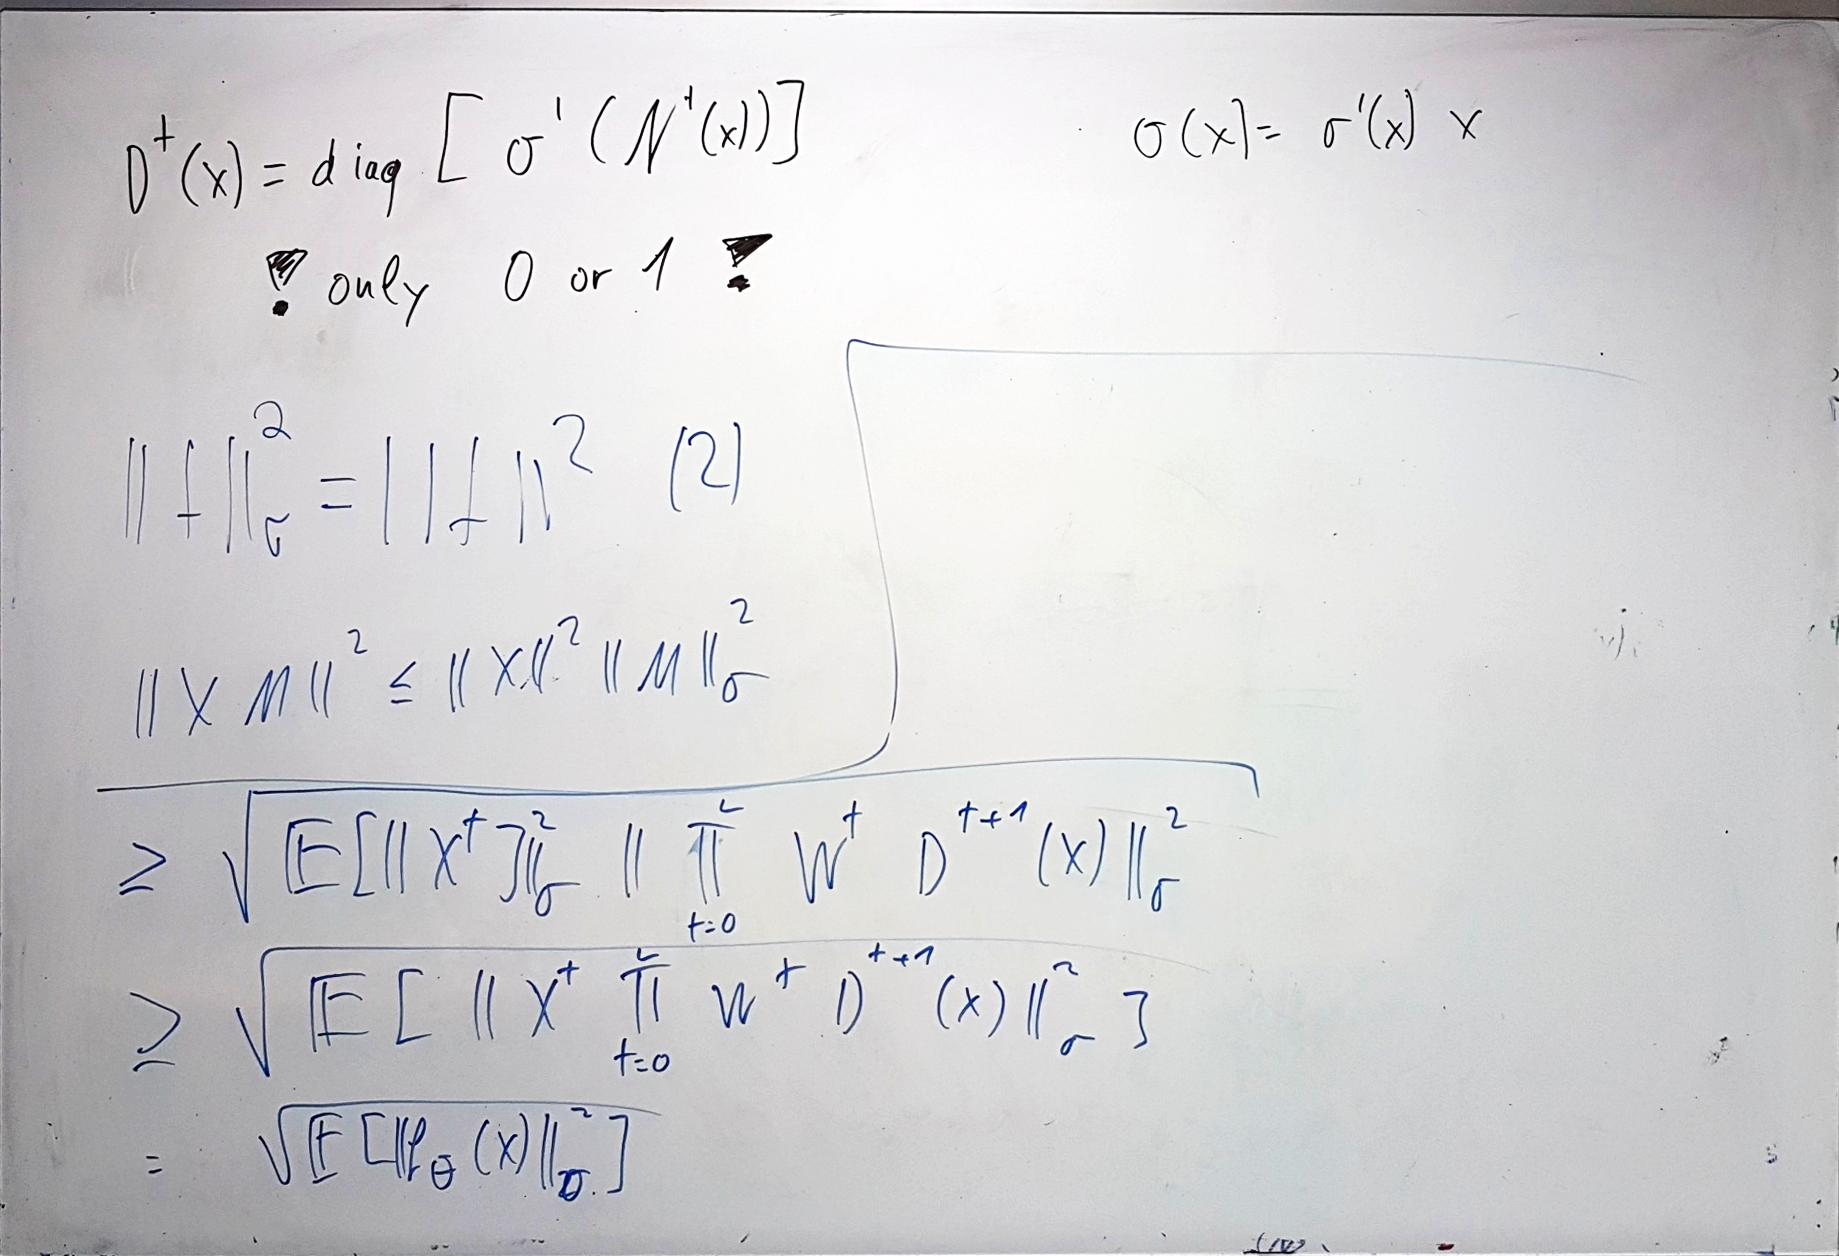 D^t(x) = diag [ σ' ( N^t(x)) ]
σ(x) = σ'(x) x
! only 0 or 1 !
||f||_σ^2 = ||f||^2 (2)
||X M||^2 ≤ ||X||^2 ||M||_σ^2
≥ √ E[||X^t]||_σ^2 || ∏_{t=0}^L W^t D^{t+1} (x) ||_σ^2
≥ √ E [ || X^t ∏_{t=0}^L W^t D^{t+1} (x) ||_σ^2 ]
= √ E [||f_θ (x)||_σ^2 ]